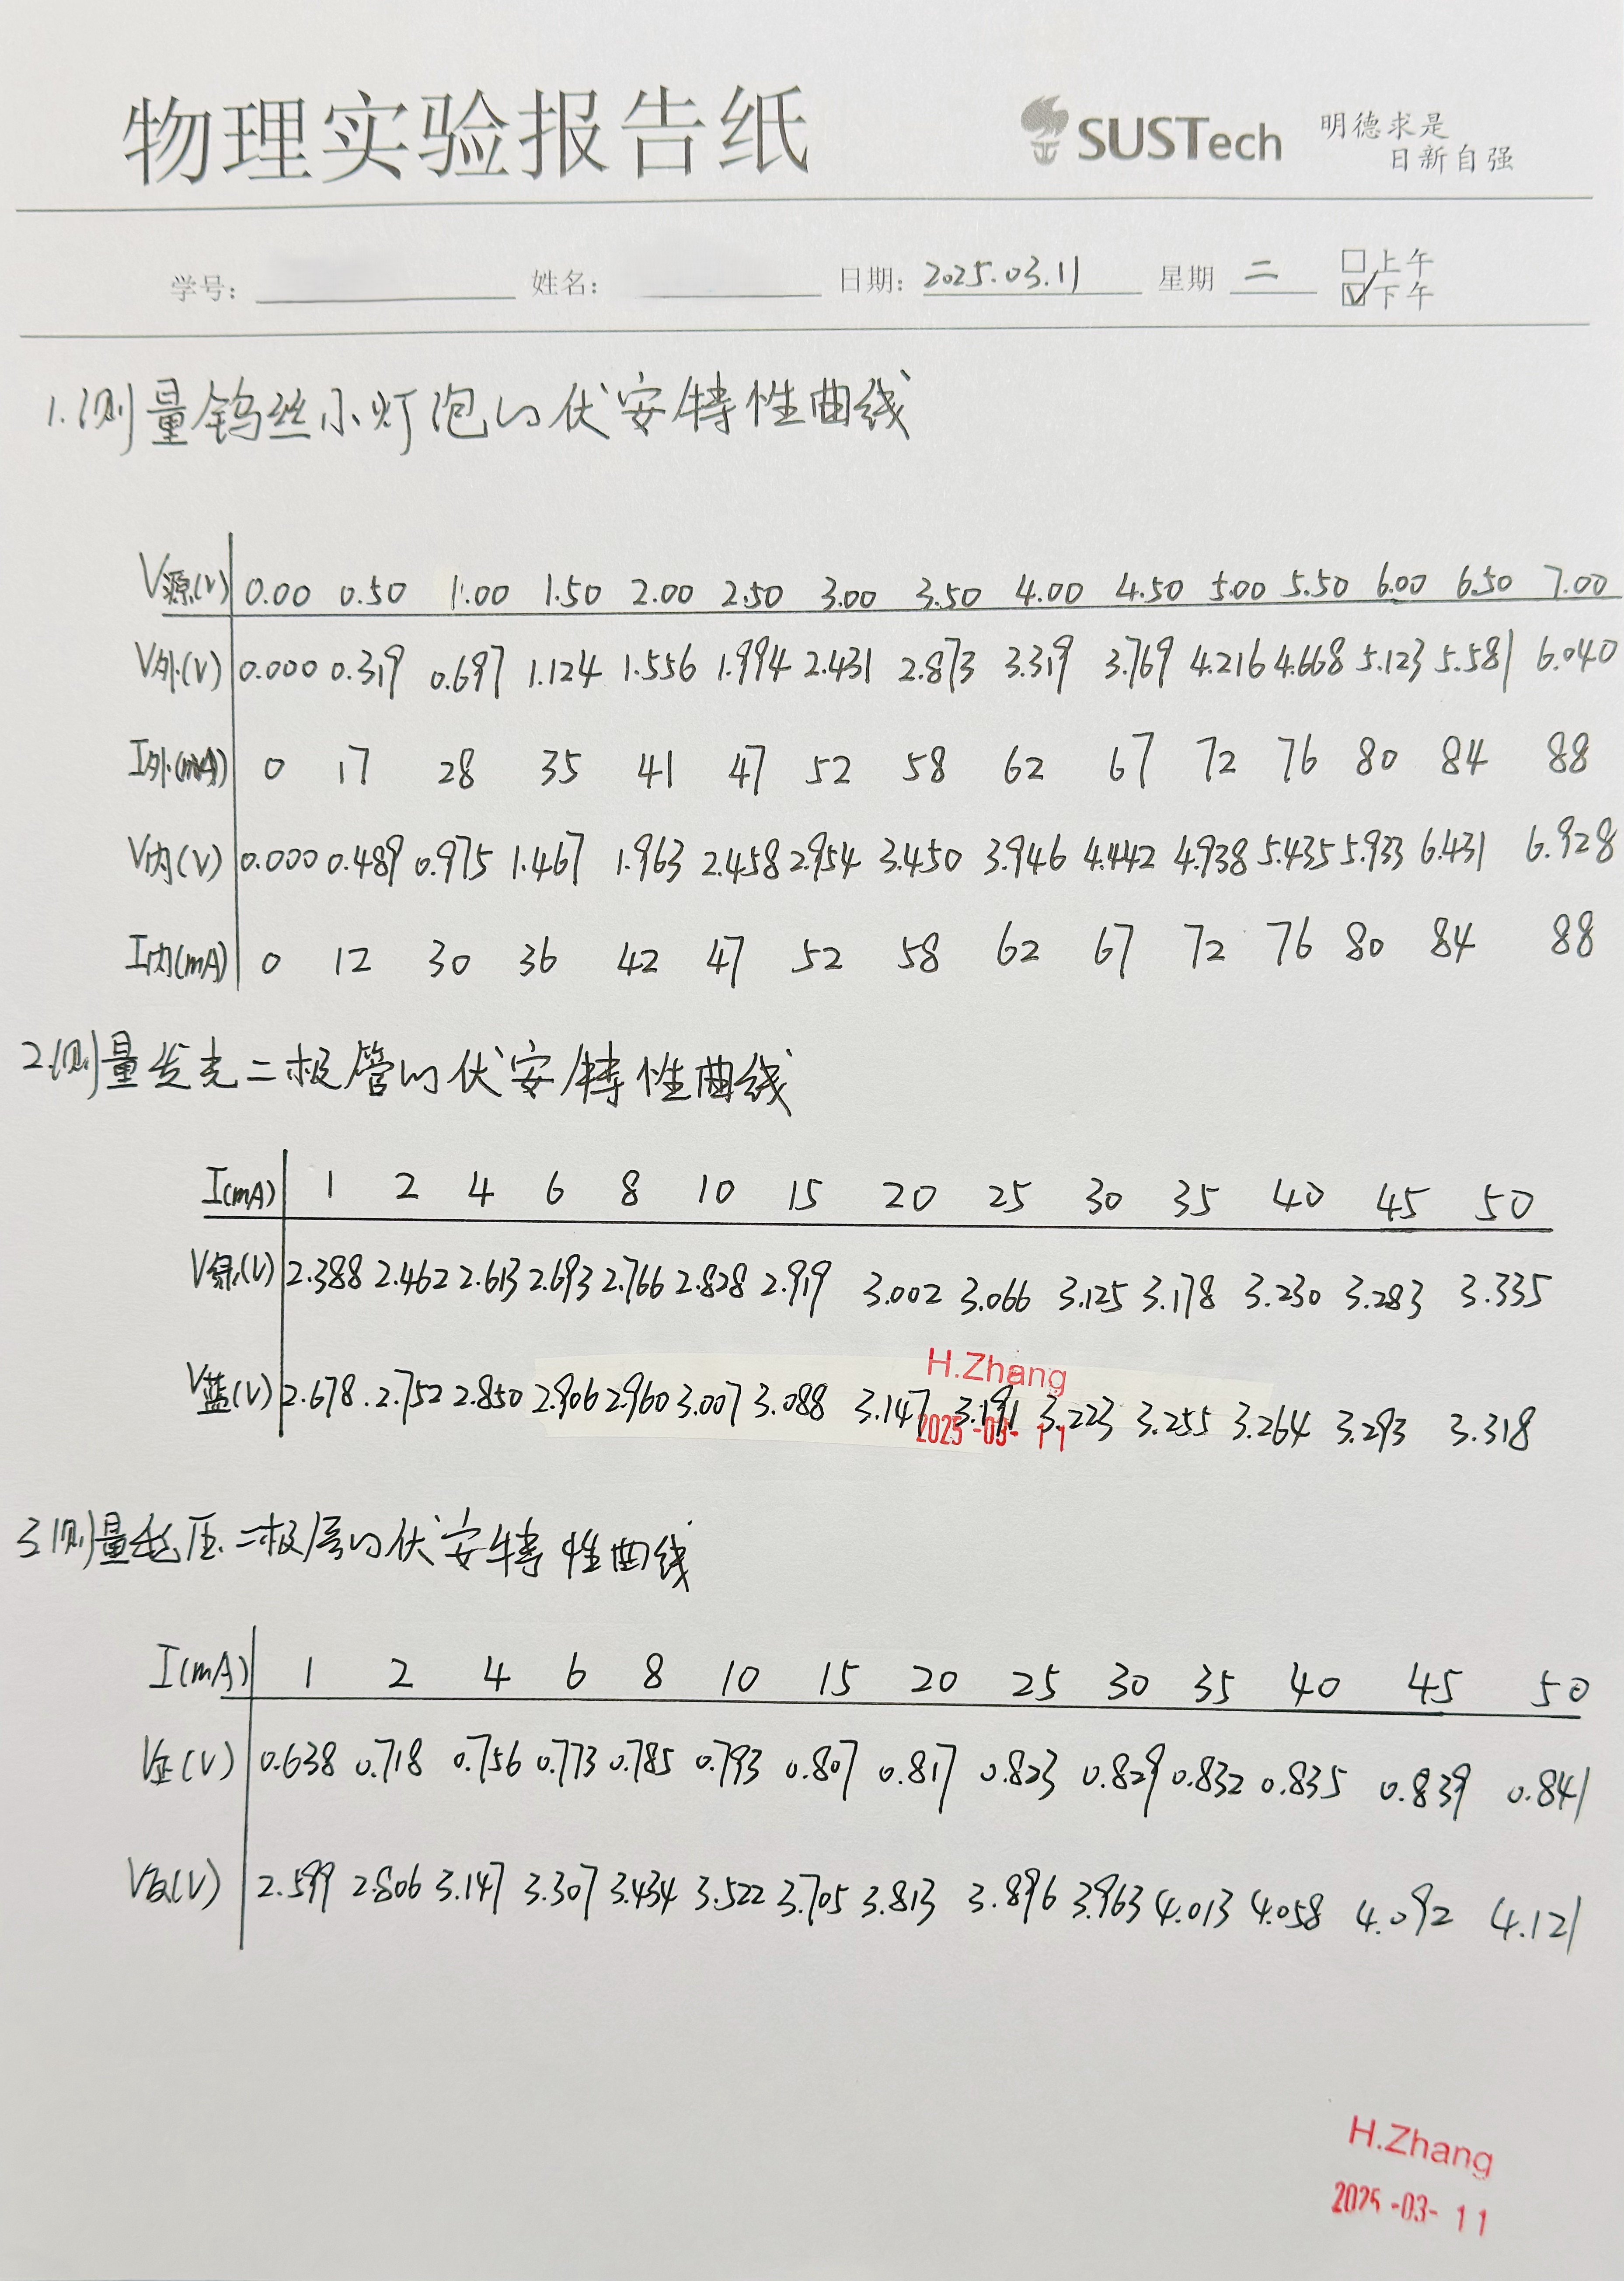 物理实验报告纸 SUSTech 明德求是
日新自强
学号: 姓名: 日期: 2025.03.11 星期 二 上午
下午
1.测量钨丝小灯泡的伏安特性曲线
V源(V) 0.00 0.50 1.00 1.50 2.00 2.50 3.00 3.50 4.00 4.50 5.00 5.50 6.00 6.50 7.00
V外(V) 0.000 0.319 0.697 1.124 1.556 1.994 2.431 2.873 3.319 3.769 4.216 4.668 5.123 5.581 6.040
I外(mA) 0 17 28 35 41 47 52 58 62 67 72 76 80 84 88
V内(V) 0.000 0.489 0.975 1.467 1.963 2.458 2.954 3.450 3.946 4.442 4.938 5.435 5.933 6.431 6.928
I内(mA) 0 12 30 36 42 47 52 58 62 67 72 76 80 84 88
2.测量发光二极管的伏安特性曲线
I(mA) 1 2 4 6 8 10 15 20 25 30 35 40 45 50
V绿(V) 2.388 2.462 2.613 2.693 2.766 2.828 2.919 3.002 3.066 3.125 3.178 3.230 3.283 3.335
H.Zhang
V蓝(V) 2.678 2.752 2.850 2.906 2.960 3.007 3.088 3.147 3.191 3.223 3.255 3.264 3.293 3.318
2025-03-11
3测量稳压二极管的伏安特性曲线
I(mA) 1 2 4 6 8 10 15 20 25 30 35 40 45 50
V正(V) 0.638 0.718 0.756 0.773 0.785 0.793 0.807 0.817 0.823 0.829 0.832 0.835 0.839 0.841
V反(V) 2.599 2.806 3.147 3.307 3.434 3.522 3.705 3.813 3.896 3.963 4.013 4.058 4.092 4.121
H.Zhang
2025-03-11